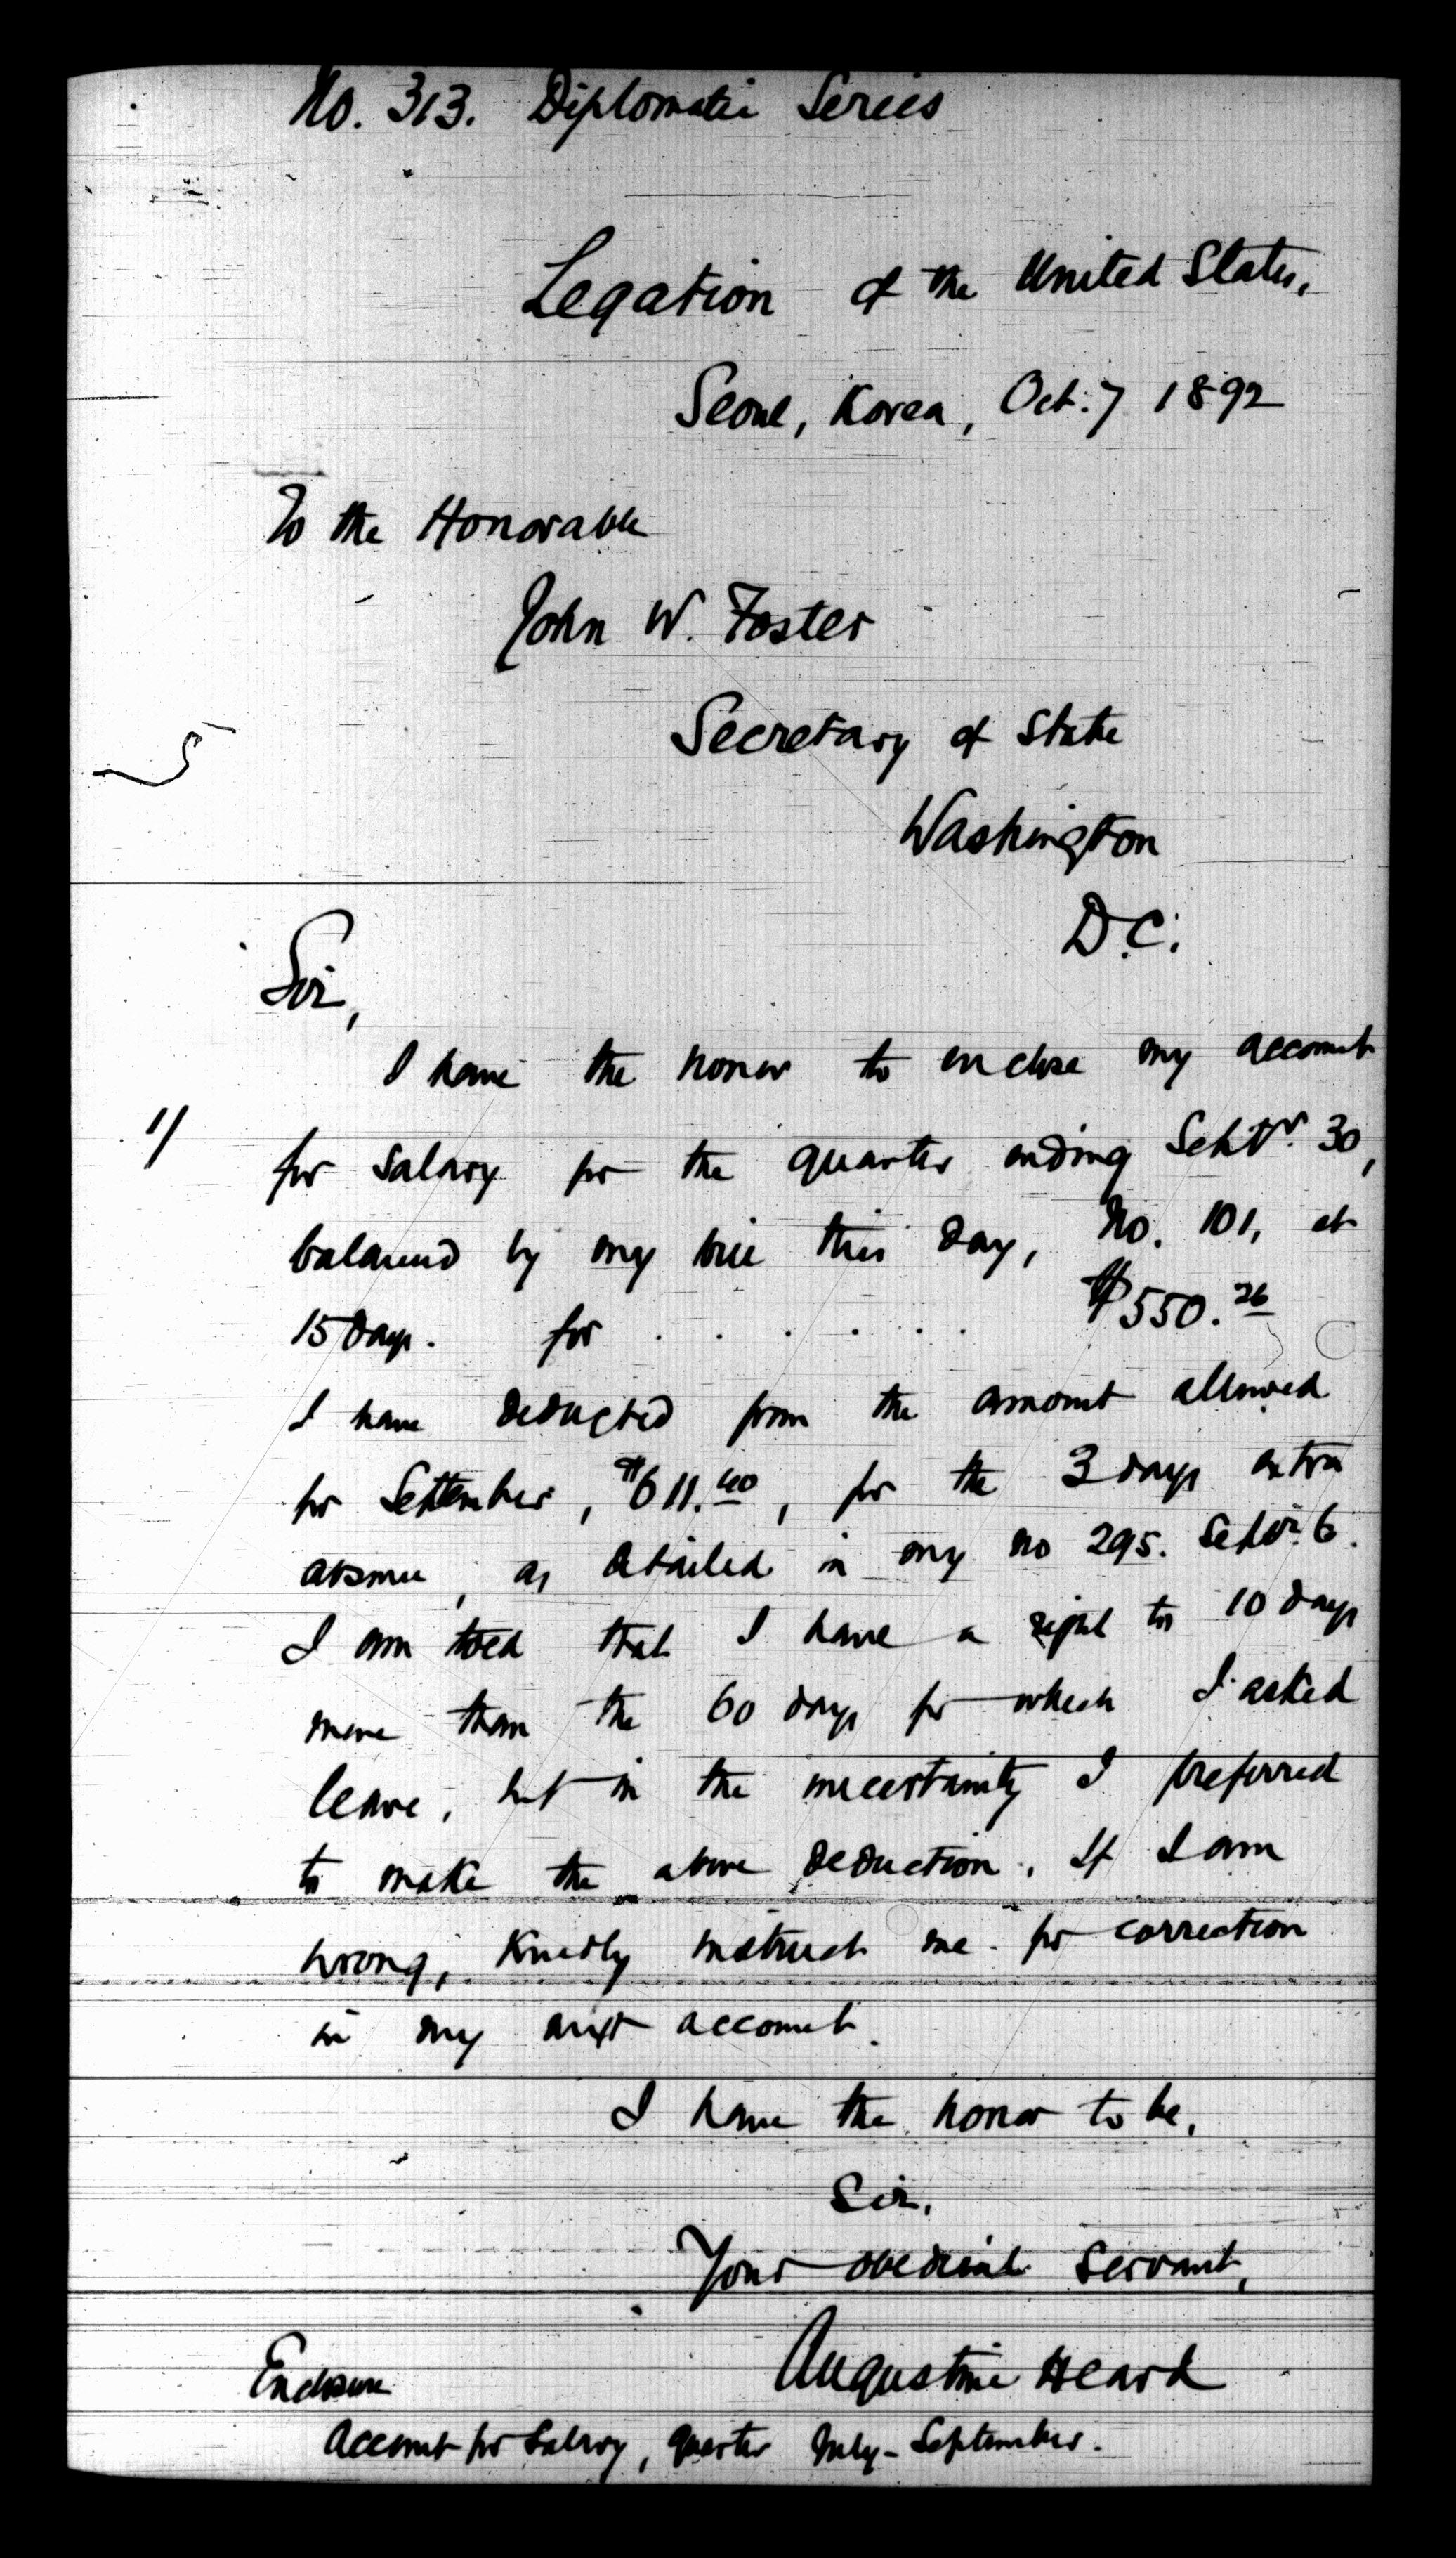 No. 313. Diplomatic Series
Legation of the United States,
Seoul, Korea, Oct. 7 1892
To the Honorable
John W. Foster
Secretary of State
Washington
D.C.
Sir,
I have the honor to enclose my account
1/ for salary for the quarter ending Septr. 30,
balanced by my bill this day, No. 101, at
15 days. for . . . . . . $550.26
I have deducted from the amount allowed
for September, $611.40, for the 3 days extra
absence, as detailed in my no 295. Septr. 6.
I am told that I have a right to 10 days
more than the 60 days for which I asked
leave, but in the uncertainty I preferred
to make the above deduction. If I am
wrong, kindly instruct me for correction
in my next account.
I have the honor to be,
Sir,
Your obedient servant,
Augustine Heard
Enclosure
Account for Salary, quarter July-September.